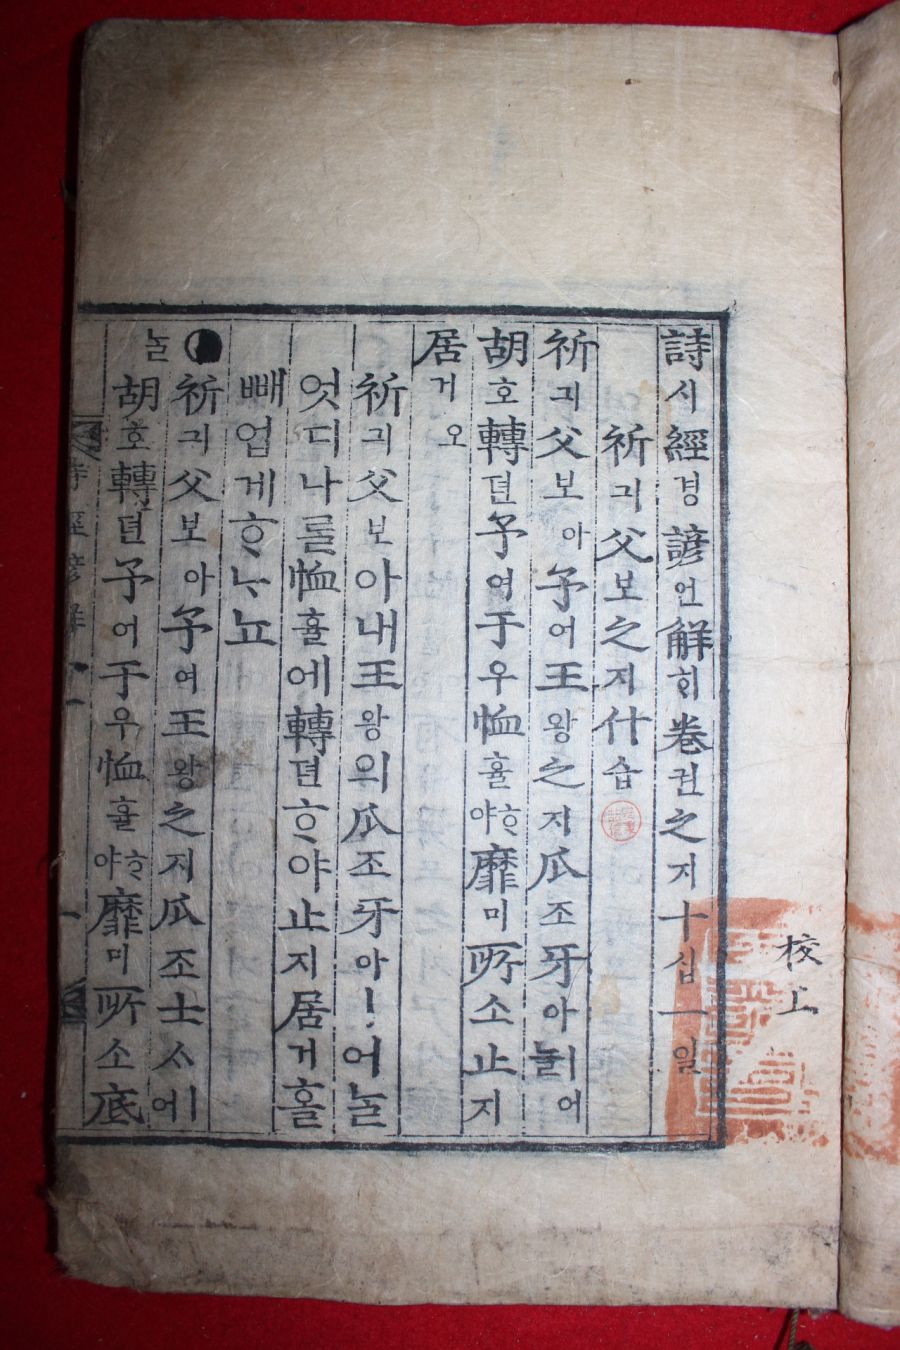 校上
詩시經경諺언解ᄒᆡ卷권之지十십一일
祈긔父보之지什습
祈긔父보아予여王왕之지爪조牙아ㅣ어
胡호轉뎐予여于우恤휼ᄒᆞ야靡미所소止지
居거오
祈긔父보아내王왕의爪조牙아ㅣ어늘
엇디나를恤휼에轉뎐ᄒᆞ야止지居거홀
빼업게ᄒᆞᄂᆞ뇨
祈긔父보아予여王왕之지爪조士ᄉᆞㅣ에
늘胡호轉뎐予여于우恤휼ᄒᆞ야靡미所소底